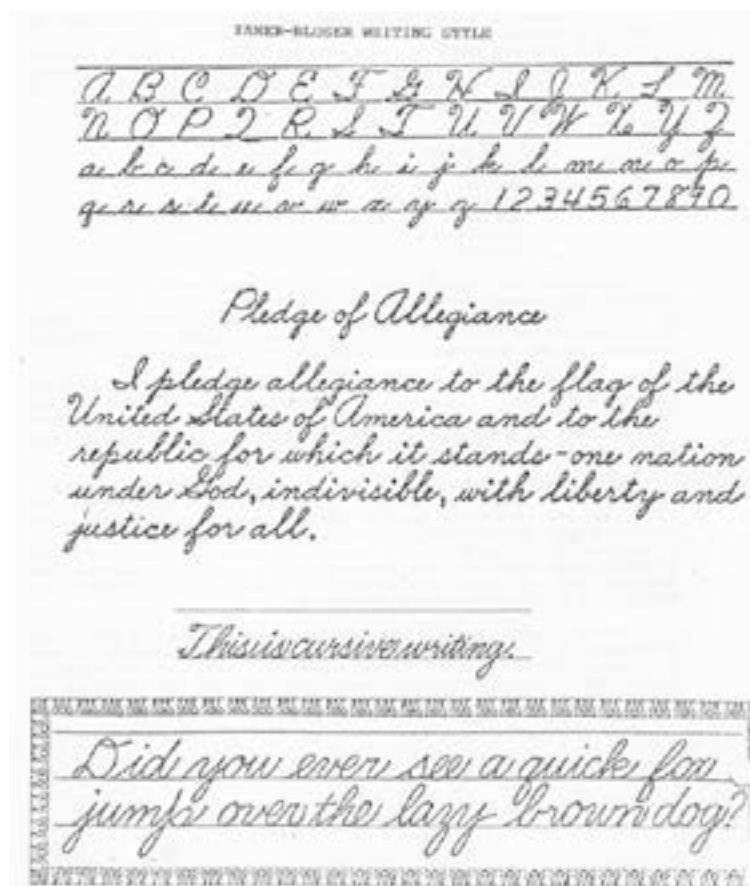 ZANER-BLOSER WRITING STYLE
A B C D E F G H I J K L M
N O P Q R S T U V W X Y Z
a b c d e f g h i j k l m n o p
q r s t u v w x y z 1 2 3 4 5 6 7 8 9 0
Pledge of Allegiance
I pledge allegiance to the flag of the
United States of America and to the
republic for which it stands-one nation
under God, indivisible, with liberty and
justice for all.
This is cursive writing.
Did you ever see a quick fox
jump over the lazy brown dog?